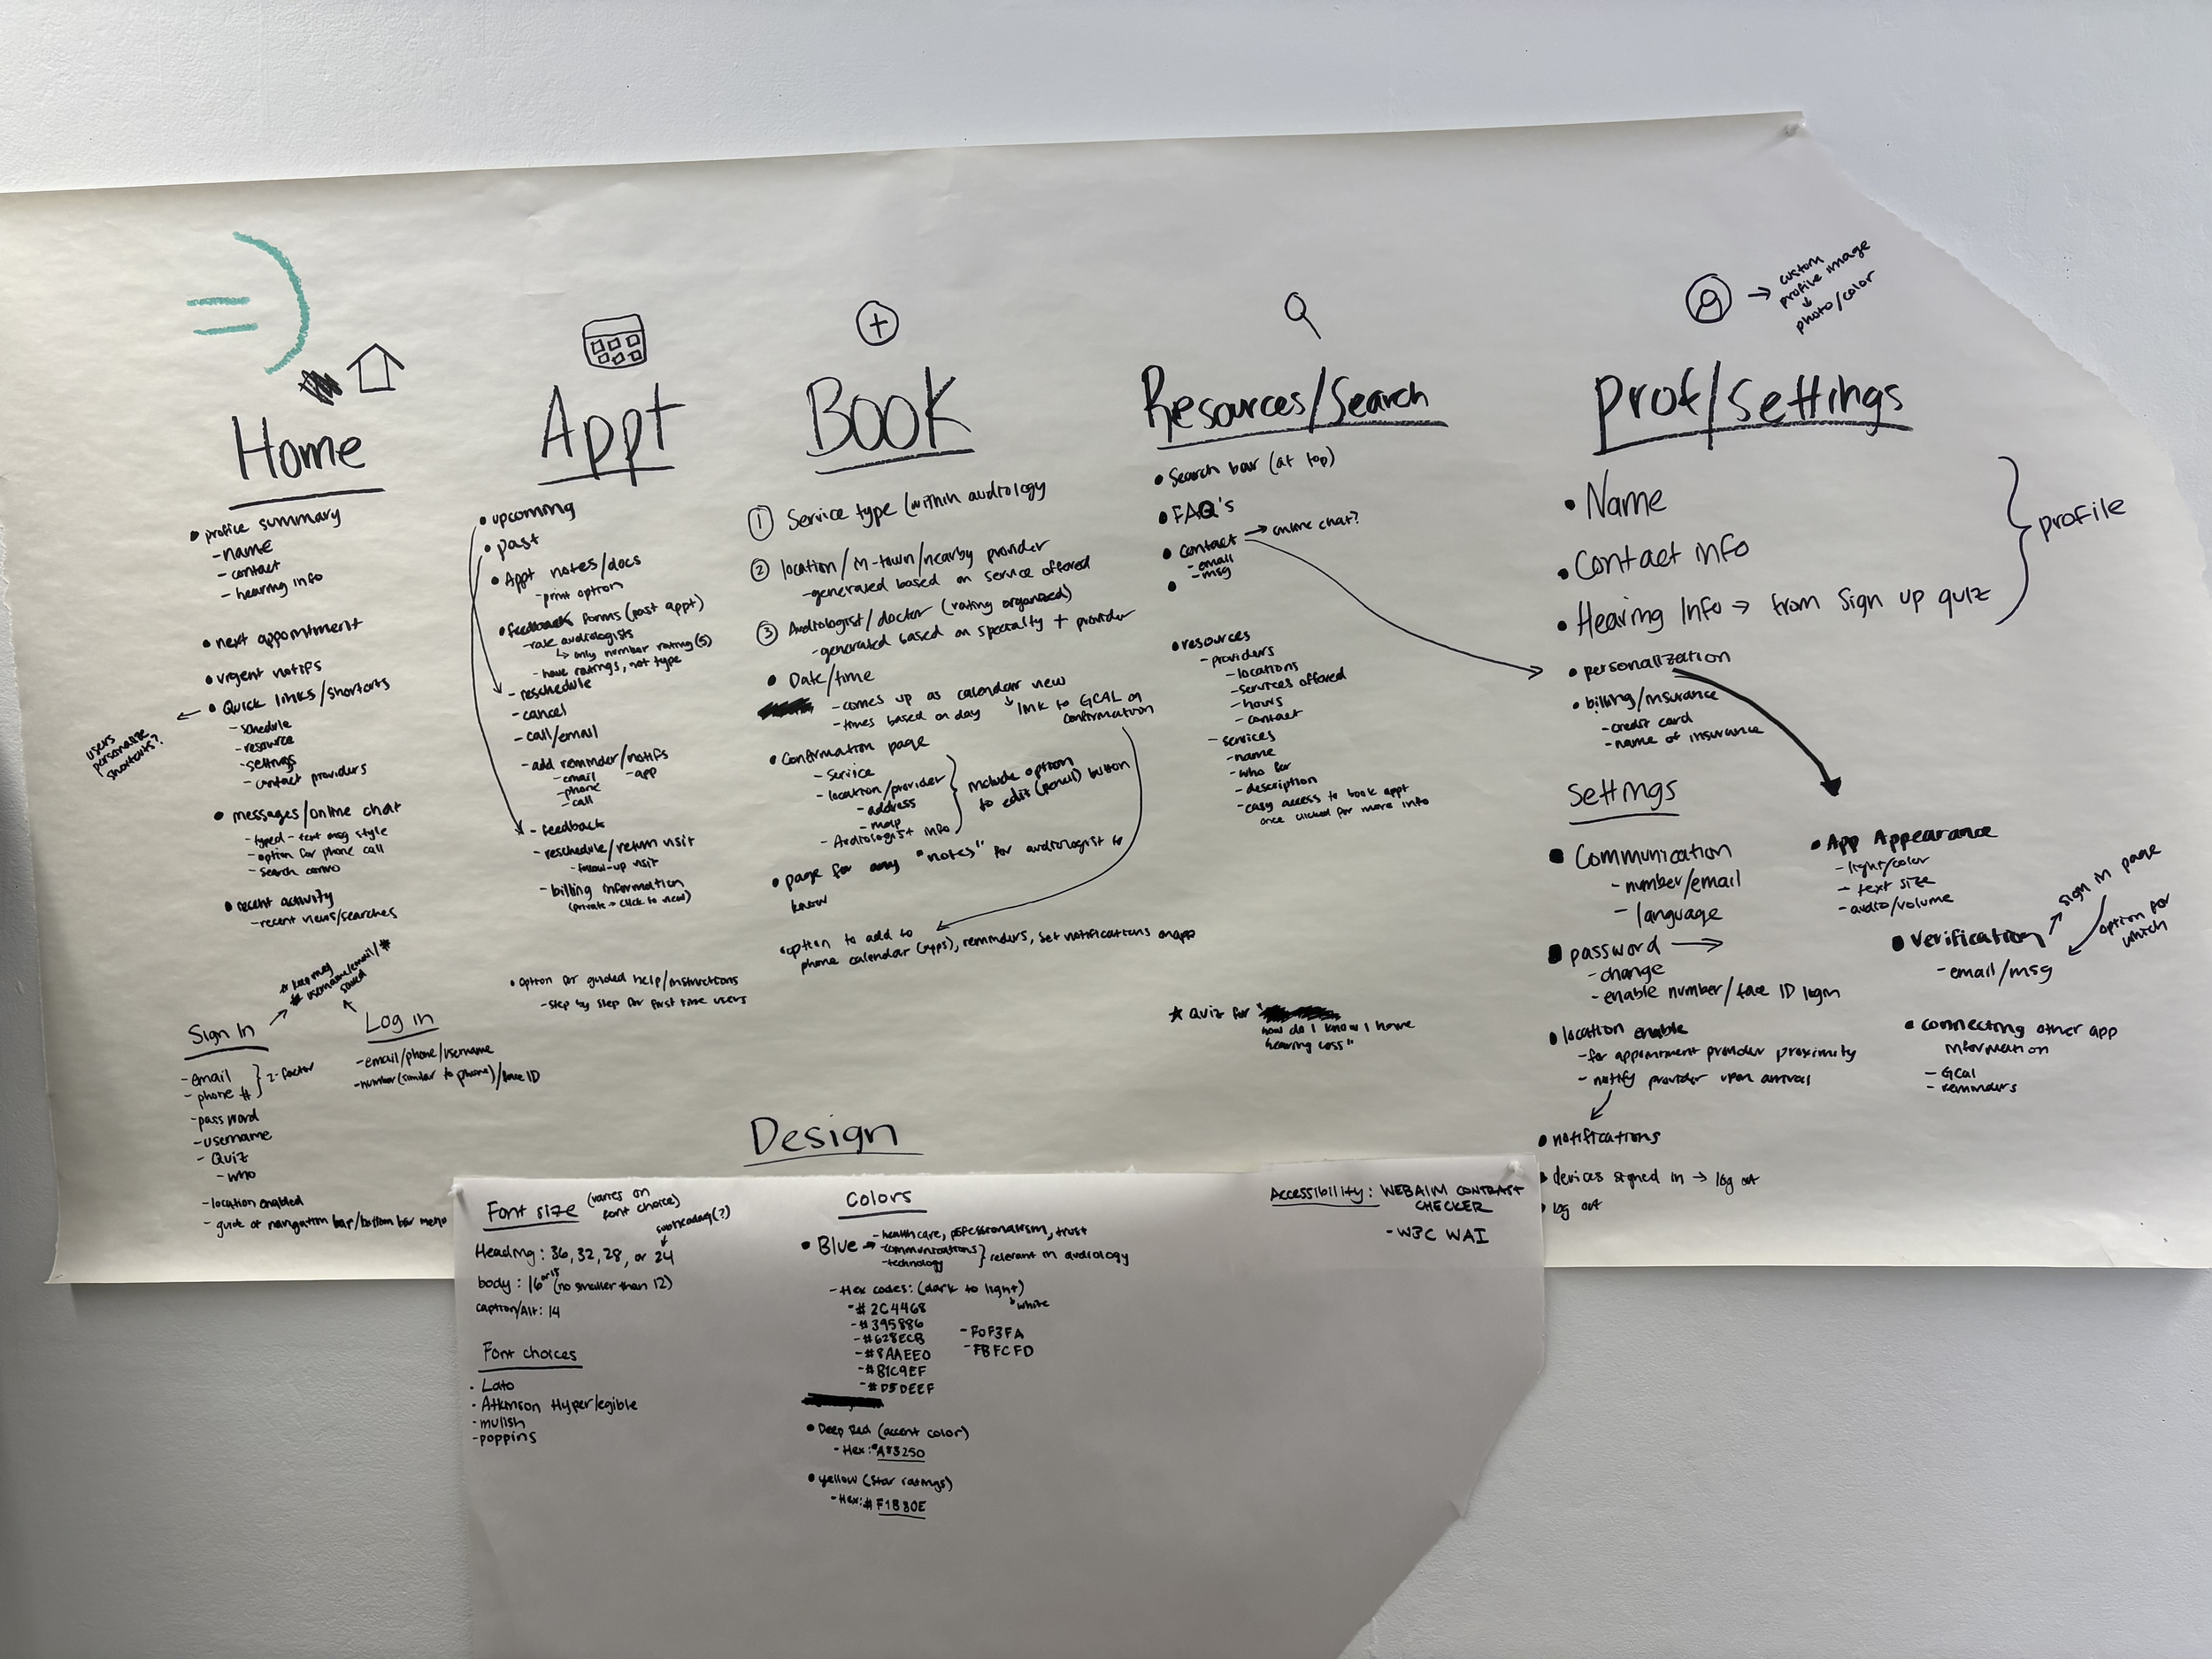 Home
• profile summary
- name
- contact
- hearing info
• next appointment
• urgent notifs
• Quick links/shortcuts
- schedule
- resource
- settings
- contact providers
users
personalize
shortcuts?
• messages/online chat
- typed - text msg style
- option for phone call
- search convo
• recent activity
- recent news/searches
username/email/#
saved
Sign In
- email
- phone #
2-factor
- password
- username
- Quiz
- who
- location enabled
- guide of navigation bar/bottom bar menu
Log in
- email/phone/username
- number (similar to phone)/face ID
Appt
• upcoming
• past
• Appt notes/docs
- print option
• feedback forms (past appt)
- rate audiologists
↳ only number rating (5)
- have ratings, not type
- reschedule
- cancel
- call/email
- add reminder/notifs
- email - app
- phone
- call
- feedback
- reschedule/return visit
- follow-up visit
- billing information
(private → click to view)
• option for guided help/instructions
- step by step for first time users
BOOK
① Service type (within audiology
② location/M-town/nearby provider
- generated based on service offered
③ Audiologist/doctor (rating organized)
- generated based on specialty + provider
• Date/time
- comes up as calendar view
- times based on day
link to GCAL on
confirmation
• Confirmation page
- service
- location/provider
- address
- map
- Audiologist info
include option
to edit (pencil) button
• page for any "notes" for audiologist to
know
• option to add to
phone calendar (apps), reminders, set notifications on app
Resources/Search
• Search bar (at top)
• FAQ's
• Contact → online chat?
- email
- msg
•
• resources
- providers
- locations
- services offered
- hours
- contact
- services
- name
- who for
- description
- easy access to book appt
once clicked for more info
★ Quiz for "
how do I know I have
hearing loss"
→ custom
profile image
↓
photo/color
Prof/Settings
• Name
• Contact info
• Hearing Info → from Sign up quiz
profile
• personalization
• billing/insurance
- credit card
- name of insurance
Settings
• Communication
- number/email
- language
• password →
- change
- enable number/face ID login
• location enable
- for appointment provider proximity
- notify provider upon arrival
• notifications
• devices signed in → log out
• log out
• App Appearance
- light/color
- text size
- audio/volume
• Verification
- email/msg
sign in page
option for
which
• connecting other app
information
- GCal
- reminders
Design
Font size (varies on
font choice)
subheading(?)
Heading: 36, 32, 28, or 24
body: 16 or 18 (no smaller than 12)
caption/Alt: 14
Font choices
- Lato
- Atkinson Hyperlegible
- mulish
- poppins
Colors
• Blue → - healthcare, professionalism, trust
- communications
- technology
} relevant in audiology
- Hex codes: (dark to light)
↓ white
- #2C4468
- #395886
- #628ECB
- #8AAEE0
- #B1C9EF
- #D5DEEF
- F0F3FA
- FBFCFD
• Deep Red (accent color)
- Hex: #A83250
• yellow (star ratings)
- Hex: #F1B30E
Accessibility: WEBAIM CONTRAST
CHECKER
- W3C WAI